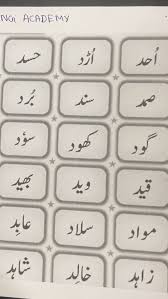 NGI ACADEMY
اُحد اُرُد حسد
صمد سند بُرد
گود کھود سوٗد
قید وید بھید
مواد سلاد عابِد
زاہد خالِد شاہد